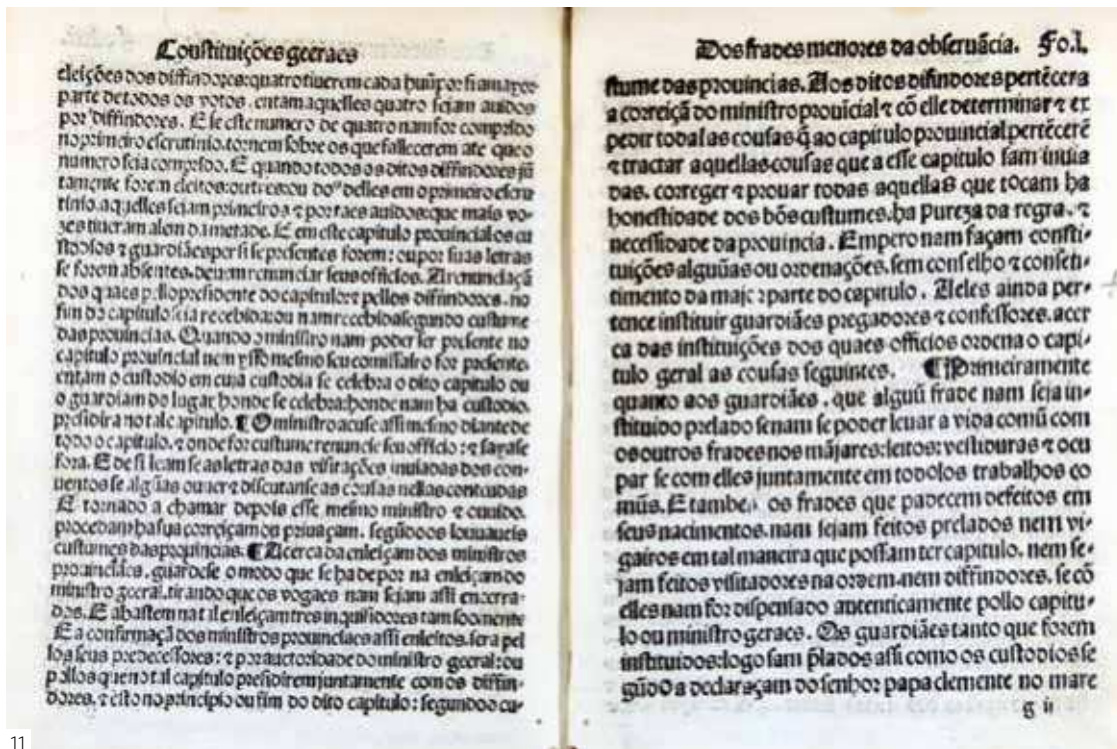 Constituições geeraes
eleições dos diffindores: quatro tiuerem cada huũ por si a mayor
parte de todos os votos, entam aquelles quatro sejam auidos
por diffindores. E se este numero de quatro nam for comprido
no primeiro escrutinio, tornem sobre os que fallecerem ate que o
numero seja comprido. E quando todos os ditos diffindores jũ
tamente forem eleitos: ou tres: ou dous delles em o primeiro escru
tinio, aquelles sejam primeiros & por taes auidos: que mais vo-
zes tiueram alem da metade. E em este capitulo prouincial os cu
stodios & guardiães per si se presentes forem: ou por suas letras
se forem absentes, deuem renunciar seus officios. A renunciaçã
dos quaes pello presidente do capitulo: & pellos diffindores, no
fim do capitulo seja recebida: ou nam recebida segundo custume
das prouincias. Quando o ministro nam poder ser presente no
capitulo prouincial nem isso mesmo seu comissairo for presente,
entam o custodio em cuja custodia se celebra o dito capitulo ou
o guardiam do lugar honde se celebra: honde nam ha custodio,
presidira no tal capitulo. ¶ O ministro acuse assi mesmo diante de
todo o capitulo, & onde for custume renuncie seu officio: & sayase
fora. E de si leam se as letras das visitações inuiadas dos con-
uentos se algũas ouuer & discutanse as cousas nellas conteudas
E tornado a chamar depois esse mesmo ministro & ouuido,
procedam ha sua correiçam ou priuaçam, segũdo os louuaueis
custumes das prouincias. ¶ Acerca da enleiçam dos ministros
prouinciaes, guardese o modo que se ha de por na enleiçam do
ministro geeral, tirando que os vogaes nam sejam assi encerra-
dos. E abastem na tal enleiçam tres inquisidores tam soomente
E a confirmaçã dos ministros prouinciaes assi enleitos, sera pel
los seus predecessores: & por auctoridade do ministro geeral: ou
pellos que no tal capitulo presidirem juntamente com os diffin-
dores, & esto no principio ou fim do dito capitulo: segundo o cu-
Dos frades menores da obseruãcia. Fo.l.
stume das prouincias. Aos ditos difindores pertẽcera
a correiçã do ministro prouicial & cõ elle determinar & ex
pedir todas as cousas q̃ ao capitulo prouincial pertẽcerẽ
& tractar aquellas cousas que a esse capitulo sam inuia
das, correger & prouar todas aquellas que tocam ha
honestidade dos bõs custumes, ha pureza da regra, &
necessidade da prouincia. Empero nam façam consti-
tuições algũas ou ordenações, sem conselho & conseti-
timento da major parte do capitulo. A eles ainda per-
tence instituir guardiães pregadores & confessores, acer
ca das instituições dos quaes officios ordena o capi-
tulo geral as cousas seguintes. ¶ Primeiramente
quanto aos guardiães, que alguũ frade nam seja in-
stituido prelado senam se poder leuar a vida comũ com
os outros frades nos mãjares: leitos: vestiduras & ocu
par se com elles juntamente em todolos trabalhos co
mũs. E tambe os frades que padecem defeitos em
seus nacimentos, nam sejam feitos prelados nem vi-
gairos em tal maneira que possam ter capitulo, nem se-
jam feitos visitadores na ordem, nem diffindores, se cõ
elles nam for dispensado autenticamente pollo capitu-
lo ou ministro geraes. Os guardiães tanto que forem
instituidos: logo sam p̃lados assi como os custodios se
gũdo a declaraçam do senhor papa clemente no mare
g ii
11